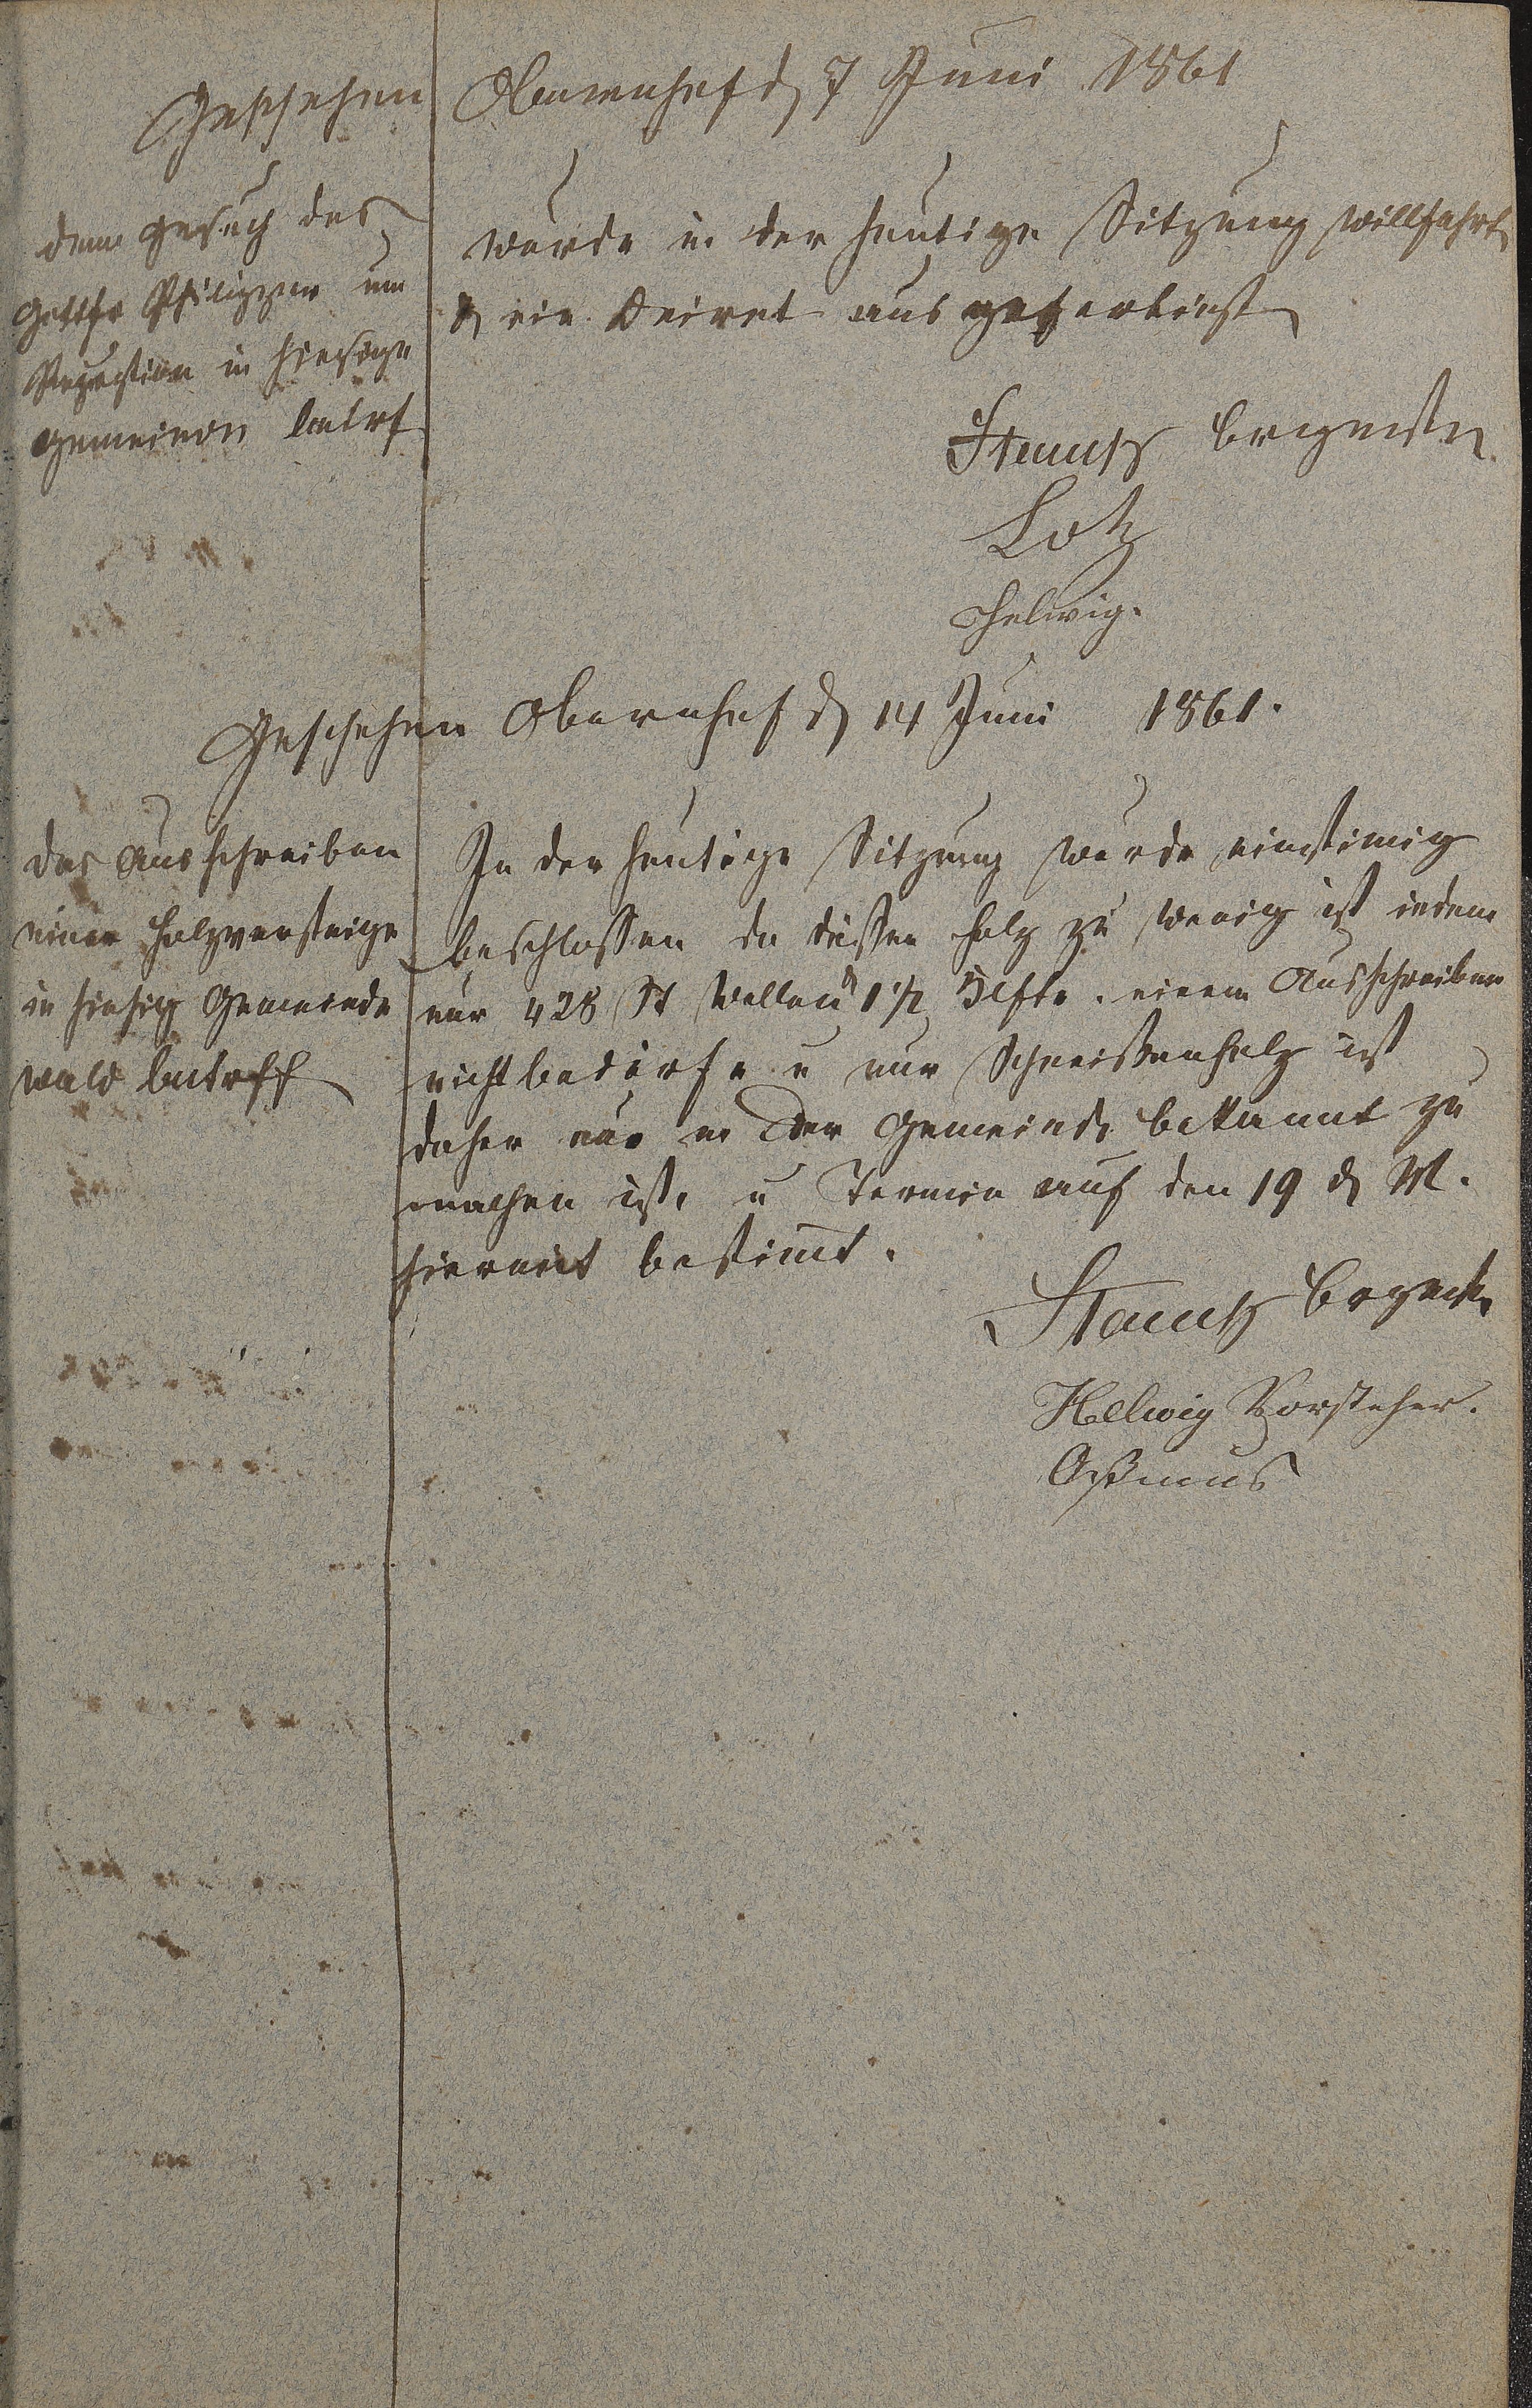 Geschehen Obernhof d 7 Juni 1861
dem Gesuch des
Gottfr Philippar um
Reception in hiesige
Gemeinde betrf
wurde in der heutige Sitzung willfahrt
& ein Decret aus gefertigt
Stamß Brgmstr.
Lotz
Helwig.
Geschehen Obernhof d 14 Juni 1861.
das Ausschreiben
einer Holzversteige
in hiesig Gemeinde
wald betreff
In der heutige Sitzung wurde einstimig
beschlossen da dießen Holz zu wenig ist indem
nur 428 St Wellen u 1 1/2 Klftr. einem Ausschreiben
nicht bedürfe u nur Schneißenholz ist
daher nur in der Gemeinde bekannt zu
machen ist, u Termin auf den 19 d M.
hiermit bestimt.
Stamß Brgmstr
Helwig Vorsteher.
Aßmus